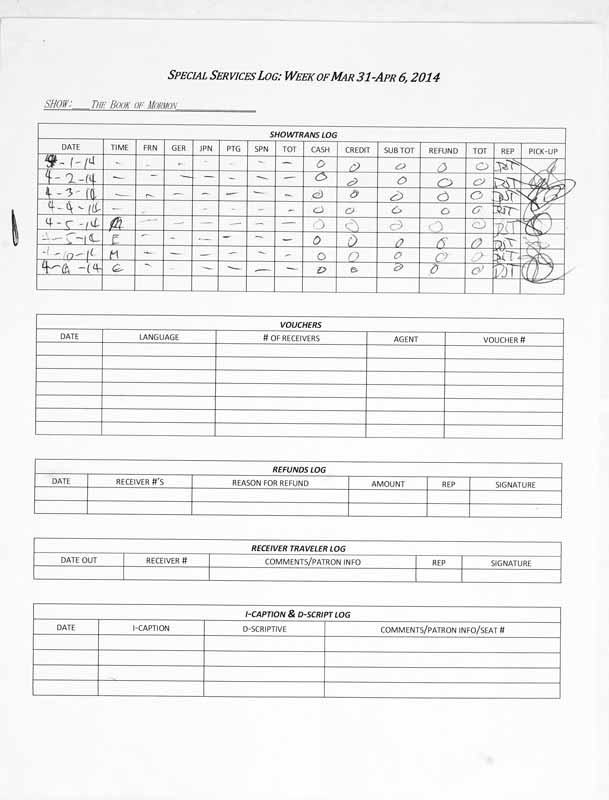 SPECIAL SERVICES LOG: WEEK OF MAR 31-APR 6, 2014
SHOW: THE BOOK OF MORMON
SHOWTRANS LOG
DATE TIME FRN GER JPN PTG SPN TOT CASH CREDIT SUB TOT REFUND TOT REP PICK-UP
4-1-14 - - - - - - - 0 0 0 0 0
4-2-14 - - - - - - - 0 0 0 0 0
4-3-14 - - - - - - - 0 0 0 0 0
4-4-14 - - - - - - - 0 0 0 0 0
4-5-14 M - - - - - - 0 0 0 0 0
-5-14 E - - - - - - 0 0 0 0 0
M - - - - - - 0 0 0 0 0
-14 E - - - - - - 0 0 0 0 0
VOUCHERS
DATE LANGUAGE # OF RECEIVERS AGENT VOUCHER #
REFUNDS LOG
DATE RECEIVER #'S REASON FOR REFUND AMOUNT REP SIGNATURE
RECEIVER TRAVELER LOG
DATE OUT RECEIVER # COMMENTS/PATRON INFO REP SIGNATURE
I-CAPTION & D-SCRIPT LOG
DATE I-CAPTION D-SCRIPTIVE COMMENTS/PATRON INFO/SEAT #